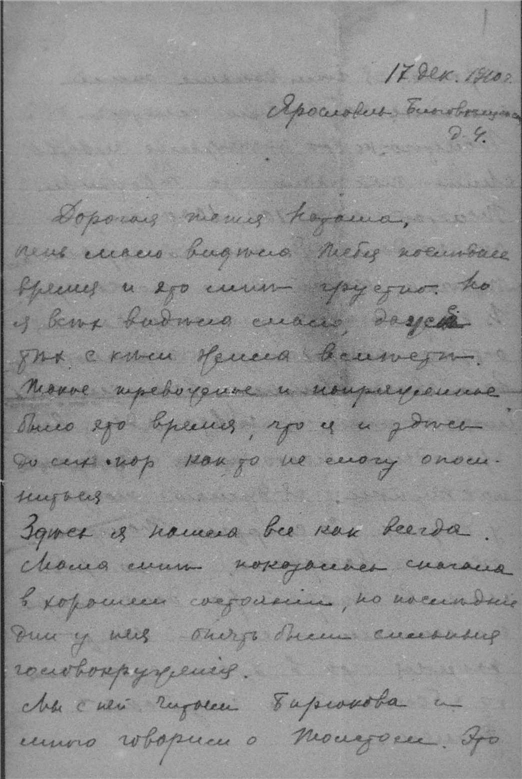 17 дек. 1910 г.
Ярославль
д. 4.
Дорогая тетя Наташа,
очень мало видѣла тебя последнее
время и это мнѣ грустно. Но
я всѣх видѣла мало, даже
тѣх с кѣм жила вместе.
Такое тревожное и напряженное
было это время, что я и здѣсь
до сих пор как то не могу опом-
ниться
Здѣсь я нашла все как всегда.
Мама мнѣ показалась сначала
в хорошем состоянии, но последние
дни у нея опять были сильныя
головокружения.
Мы с ней читаем Бирюкова и
много говорим о Толстом. Это